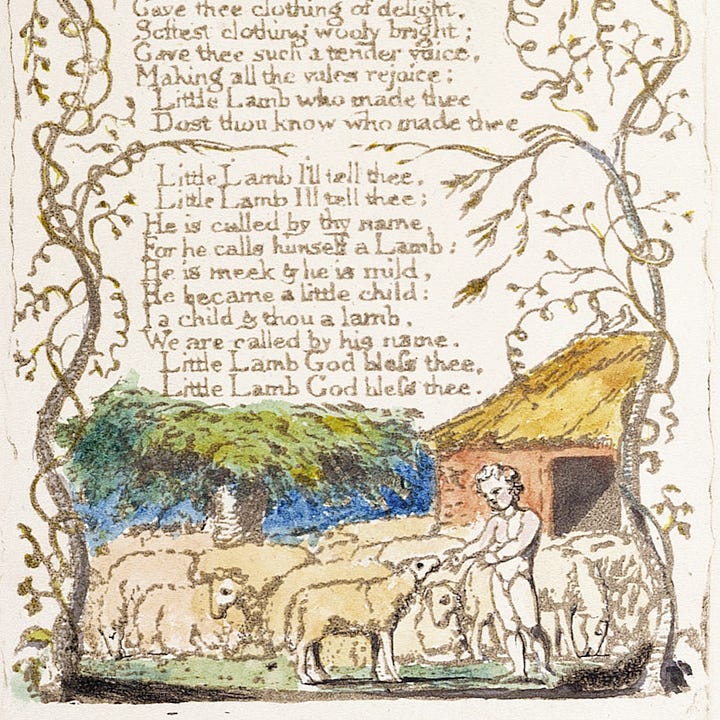 Gave thee clothing of delight,
Softest clothing wooly bright;
Gave thee such a tender voice,
Making all the vales rejoice:
Little Lamb who made thee
Dost thou know who made thee
Little Lamb I'll tell thee,
Little Lamb I'll tell thee;
He is called by thy name,
For he calls himself a Lamb:
He is meek & he is mild,
He became a little child:
I a child & thou a lamb,
We are called by his name.
Little Lamb God bleſs thee,
Little Lamb God bleſs thee.